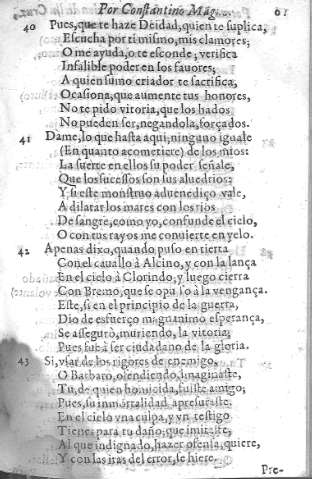 Por Constantino Mag. 61
40 Pues, que te haze Deidad, quien te suplica,
Escucha por ti mismo, mis clamores;
O me ayuda, o te esconde; verifica
Infalible poder en los fauores;
A quien su mo criador te sacrifica,
Ocasiona, que aumente tus honores,
No te pido vitoria, que los hados
No pueden ser, negandola, forçados.
41 Dame, lo que hasta aqui, ninguno iguale
(En quanto acometiere) de los mios:
La suerte en ellos su poder señale,
Que los sucessos son sus aluedrios:
Y si este monstruo aduenediço vale,
A dilatar los mares con los rios
De sangre, como yo, confunde el cielo,
O con tus rayos me conuierte en yelo.
42 Apenas dixo, quando puso en tierra
Con el cauallo à Alcino, y con la lança
En el cielo à Clorindo, y luego cierra
Con Bremo, que se opuso à la vengança.
Este, si en el principio de la guerra,
Dio de esfuerço magnanimo esperança,
Se assegurò, muriendo, la vitoria;
Pues sub à ser ciudadano de la gloria.
43 Si, vsar de los rigores de enemigo,
O Barbaro, ofendiendo, imaginaste,
Tu, de quien homicida, fuiste amigo;
Pues, su inmortalidad apresuraste.
En el cielo vna culpa, y vn testigo
Tienes para tu daño; que imitaste,
Al que indignado, hazer ofensa, quiere,
Y con las iras del error, se hiere.
Pre-